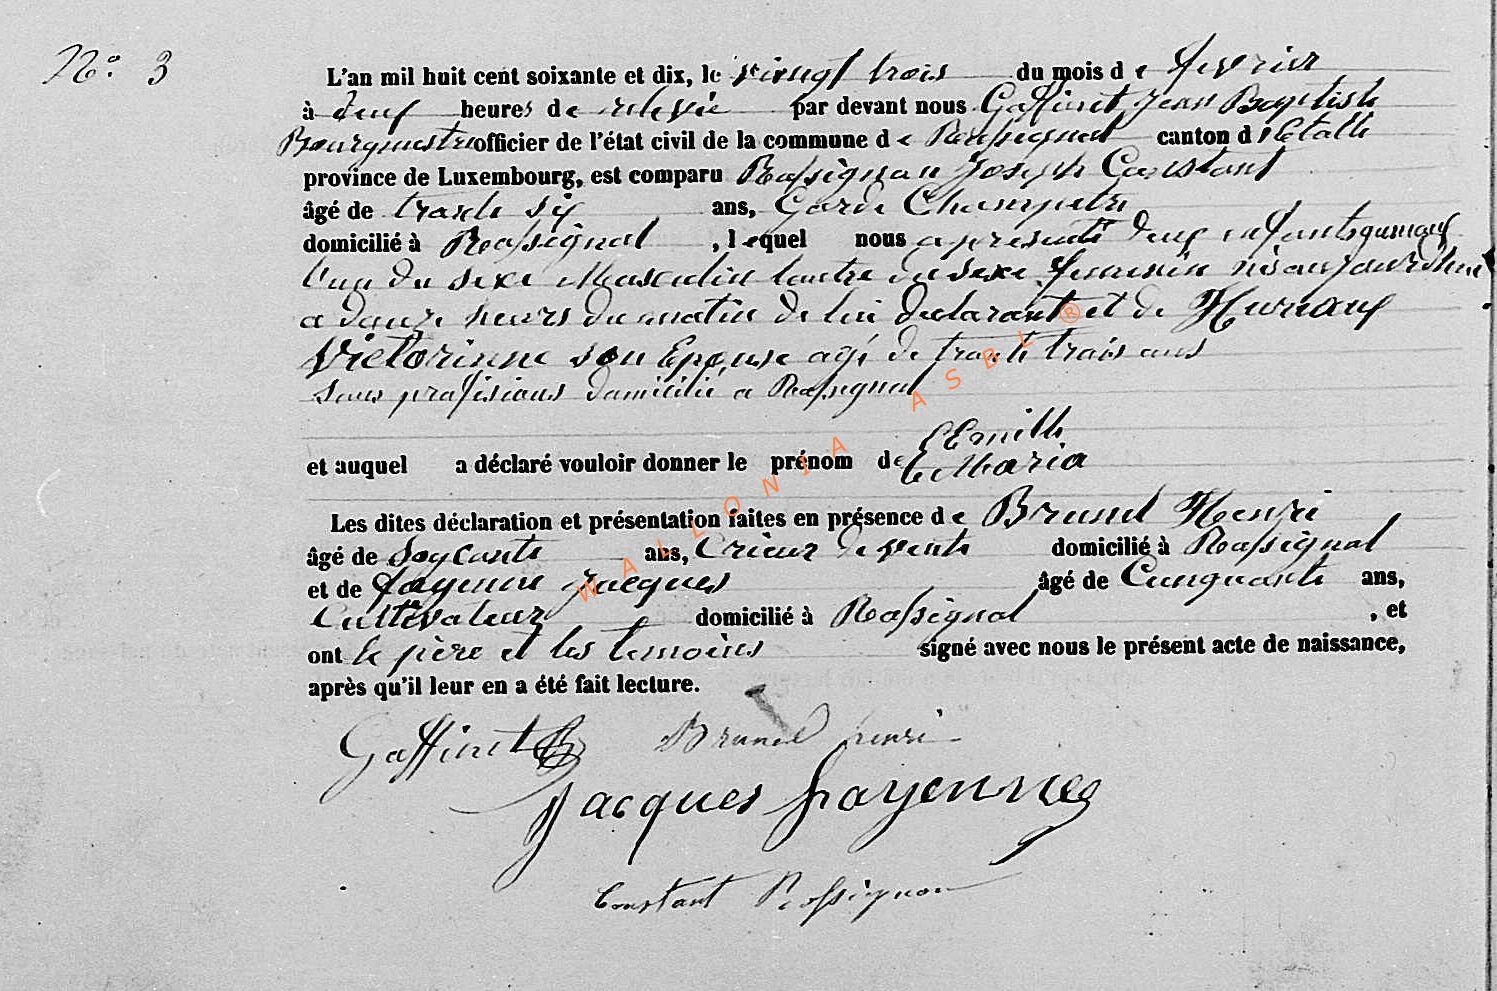 N° 3
L'an mil huit cent soixante et dix, le vingt trois du mois de fevrier
à deux heures de relevée par devant nous Gaffinet Jean Baptiste
Bourgmestre officier de l'état civil de la commune de Rossignol canton d'Etalle
province de Luxembourg, est comparu Rossignon Joseph Constant
âgé de trante six ans, Garde Champetre
domicilié à Rossignol, lequel nous a presenté deux enfants jumaux
l'un du sexe Masculin lautre du sexe feminin nés aujourdhui
a douze heurs du matin de lui declarant et de
Victorinne son Epouse agé de trante trois ans
sans profisions domicilié a Rossignol
et auquel a déclaré vouloir donner le prénom de Emille
Maria
Les dites déclaration et présentation faites en présence de Brunel Henri
âgé de Soycante ans, Crieur de vente domicilié à Rossignol
et de fayenne Jacques âgé de Cunquante ans,
Cultivateur domicilié à Rossignol, et
ont le père et les temoins signé avec nous le présent acte de naissance,
après qu'il leur en a été fait lecture.
Gaffinet Brunel henri
Jacques fayenne
Constant Rossignon
WALLONIA ASBL ®